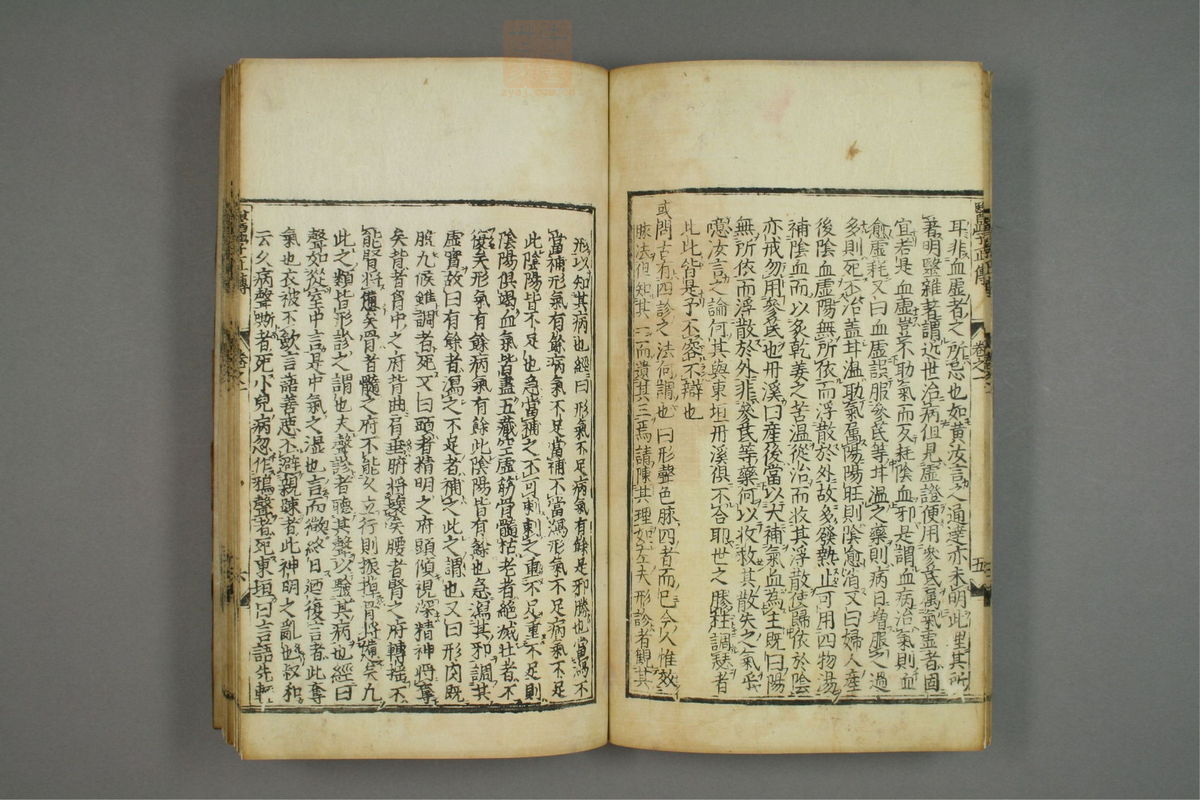 耳非血虛者之所忌也如黃汝言之通達亦未明此理其所
著明醫雜著謂近世治病但見虛證便用參芪屬氣虛者固
宜若是血虛豈不助氣而反耗陰血邪是謂血病治氣則血
愈虛耗又曰血虛誤服參芪等甘溫之藥則病日增服之過
多則死不治蓋甘溫助氣屬陽陽旺則陰愈消又曰婦人產
後陰血虛陽無所依而浮散於外故多發熱止可用四物湯
補陰血而以炙乾姜之苦溫從治而收其浮散使歸依於陰
亦戒勿用參芪也丹溪曰產後當以大補氣血為主既曰陽
無所依而浮散於外非參芪等藥何以收救其散失之氣乎
噫汝言之論何其與東垣丹溪俱不合耶世之膠柱調瑟者
比比皆是予不容不辯也
或問古有四診之法何謂也曰形聲色脉四者而已今人惟效
脉法但知其一而遺其三焉請陳其理如左夫形診者觀其
形以知其病也經曰形氣不足病氣有餘是邪勝也當瀉不
當補形氣有餘病氣不足當補不當瀉形氣不足病氣不足
此陰陽皆不足也急當補之不可刺刺之重不足重不足則
陰陽俱竭血氣皆盡五藏空虛筋骨髓枯老者絕滅壯者不
復矣形氣有餘病氣有餘此陰陽皆有餘也急瀉其邪調其
虛實故曰有餘者瀉之不足者補之此之謂也又曰形肉既
脫九候雖調者死又曰頭者精明之府頭傾視深精神將奪
矣背者胷中之府背曲肩垂腑將壞矣腰者腎之府轉搖不
能腎將憊矣骨者髓之府不能久立行則振掉骨將憊矣凡
此之類皆形診之謂也夫聲診者聽其聲以驗其病也經曰
聲如從室中言是中氣之濕也言而微終日廼復言者此奪
氣也衣被不歛言語善惡不避親踈者此神明之亂也叔和
云久病聲嘶者死小兒病忽作鴉聲者死東垣曰言語先輕
醫學正傳
卷之一
五
醫學正傳
卷之一
六